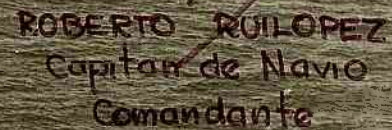 ROBERTO RUILOPEZ
Capitan de Navio
Comandante